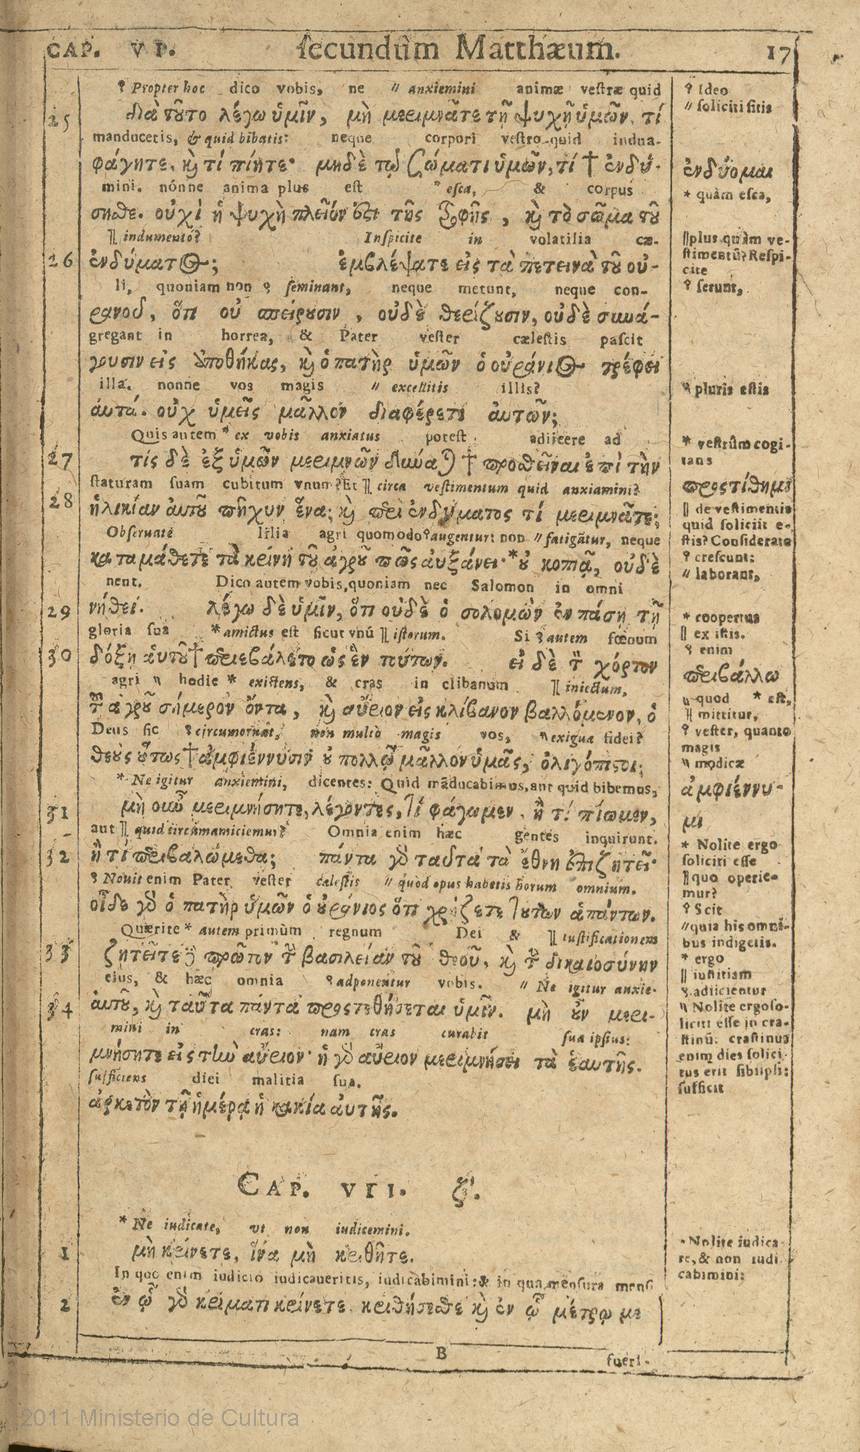 CAP. VI. secundùm Matthæum. 17
⸮ Propter hoc dico vobis, ne // anxiemini animæ vestræ quid
25 διὰ τοῦτο λέγω ὑμῖν, μὴ μεριμνᾶτε τῇ ψυχῇ ὑμῶν, τί
manducetis, & quid bibatis: neque corpori vestro quid indua-
φάγητε, καὶ τί πίητε· μηδὲ τῷ σώματι ὑμῶν, τί † ἐνδύ-
mini. nónne anima plus est " esca, & corpus
σησθε. οὐχὶ ἡ ψυχὴ πλεῖόν ἐστι τῆς τροφῆς, καὶ τὸ σῶμα τοῦ
][ indumento? Inspicite in volatilia cæ-
26 ἐνδύματος; ἐμβλέψατε εἰς τὰ πετεινὰ τοῦ οὐ-
li, quoniam non ⸮ seminant, neque metunt, neque con-
ρανοῦ, ὅτι οὐ σπείρουσιν, οὐδὲ θερίζουσιν, οὐδὲ συνά-
gregant in horrea, & Pater vester cælestis pascit
γουσιν εἰς ἀποθήκας, καὶ ὁ πατὴρ ὑμῶν ὁ οὐράνιος τρέφει
illa. nonne vos magis // excellitis illis?
αὐτά. οὐχ ὑμεῖς μᾶλλον διαφέρετε αὐτῶν;
Quis autem * ex vobis anxiatus potest adiicere ad
27 τίς δὲ ἐξ ὑμῶν μεριμνῶν δύναται † προσθεῖναι ἐπὶ τὴν
staturam suam cubitum vnum? Et ][ circa vestimentum quid anxiamini?
28 ἡλικίαν αὐτοῦ πῆχυν ἕνα; καὶ περὶ ἐνδύματος τί μεριμνᾶτε;
Obseruate lilia agri quomodo ⸮ augentur: non // fatigātur, neque
καταμάθετε τὰ κρίνη τοῦ ἀγροῦ πῶς αὐξάνει· * οὐ κοπιᾷ, οὐδὲ
nent. Dico autem vobis, quoniam nec Salomon in omni
29 νήθει. λέγω δὲ ὑμῖν, ὅτι οὐδὲ ὁ σολομὼν ἐν πάσῃ τῇ
gloria sua * amictus est sicut vnū ][ istorum. Si ⸮ autem fœnum
30 δόξῃ αὐτοῦ † περιεβάλετο ὡς ἓν τούτων. εἰ δὲ τὸν χόρτον
agri \\ hodie * existens, & cras in clibanum ][ iniectum,
τοῦ ἀγροῦ σήμερον ὄντα, καὶ αὔριον εἰς κλίβανον βαλλόμενον, ὁ
Deus sic ⸮ circumornat, non multò magis vos, \\ exigua fidei?
θεὸς οὕτως † ἀμφιέννυσιν οὐ πολλῷ μᾶλλον ὑμᾶς, ὀλιγόπιστοι;
* Ne igitur anxiemini, dicentes: Quid māducabimus, aut quid bibemus,
31 μὴ οὖν μεριμνήσητε, λέγοντες, Τί φάγωμεν, ἢ τί πίωμεν,
aut ][ quid circumamiciemur? Omnia enim hæc gentes inquirunt.
32 ἢ τί περιβαλώμεθα; πάντα γὰρ ταῦτα τὰ ἔθνη ἐπιζητεῖ·
⸮ Nouit enim Pater vester cælestis // quòd opus habetis horum omnium.
οἶδε γὰρ ὁ πατὴρ ὑμῶν ὁ οὐράνιος ὅτι χρῄζετε τούτων ἁπάντων.
Quærite * autem primùm regnum Dei & ][ iustificationem
33 ζητεῖτε δὲ πρῶτον τὴν βασιλείαν τοῦ θεοῦ, καὶ τὴν δικαιοσύνην
eius, & hæc omnia ⸮ adponentur vobis. // Ne igitur anxie-
34 αὐτοῦ, καὶ ταῦτα πάντα προςτεθήσεται ὑμῖν. μὴ οὖν μερι-
mini in cras: nam cras curabit sua ipsius:
μνήσητε εἰς τὴν αὔριον· ἡ γὰρ αὔριον μεριμνήσει τὰ ἑαυτῆς.
sufficiens diei malitia sua.
ἀρκετὸν τῇ ἡμέρᾳ ἡ κακία αὐτῆς.
CAP. VII. ζ'.
* Ne iudicate, vt non iudicemini.
1 μὴ κρίνετε, ἵνα μὴ κριθῆτε.
In quo enim iudicio iudicaueritis, iudicabimini: & in qua mensura mensi
2 ἐν ᾧ γὰρ κρίματι κρίνετε. κριθήσεσθε καὶ ἐν ᾧ μέτρῳ με
B fueri-
⸮ Ideo
// soliciti sitis
ἐνδύομαι
* quàm esca,
][ plus quàm ve-
stimentū? Respi-
cite
⸮ serunt,
\\ pluris estis
* vestrûm cogi-
tans
προςτίθημι
][ de vestimentis
quid soliciti e-
stis? Considerate
⸮ crescunt:
// laborant,
* coopertus
][ ex istis.
⸮ enim
περιβάλλω
\\ quod * est,
][ mittitur,
⸮ vester, quanto
magis
\\ modicæ
ἀμφιέννυ-
μι
* Nolite ergo
soliciti esse
][ quo operie-
mur?
⸮ Scit
// quia his omni-
bus indigetis.
* ergo
][ iustitiam
⸮ adiicientur
\\ Nolite ergo so-
liciti esse in cra-
stinū. crastinus
enim dies solici-
tus erit sibi ipsi:
sufficit
* Nolite iudica-
re, & non iudi
cabimini:
2011 Ministerio de Cultura